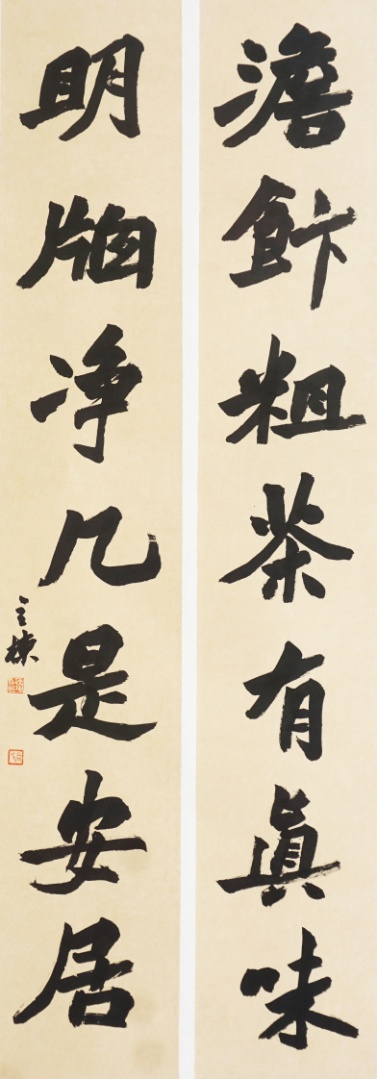 澹飰粗茶有眞味
明牕净几是安居